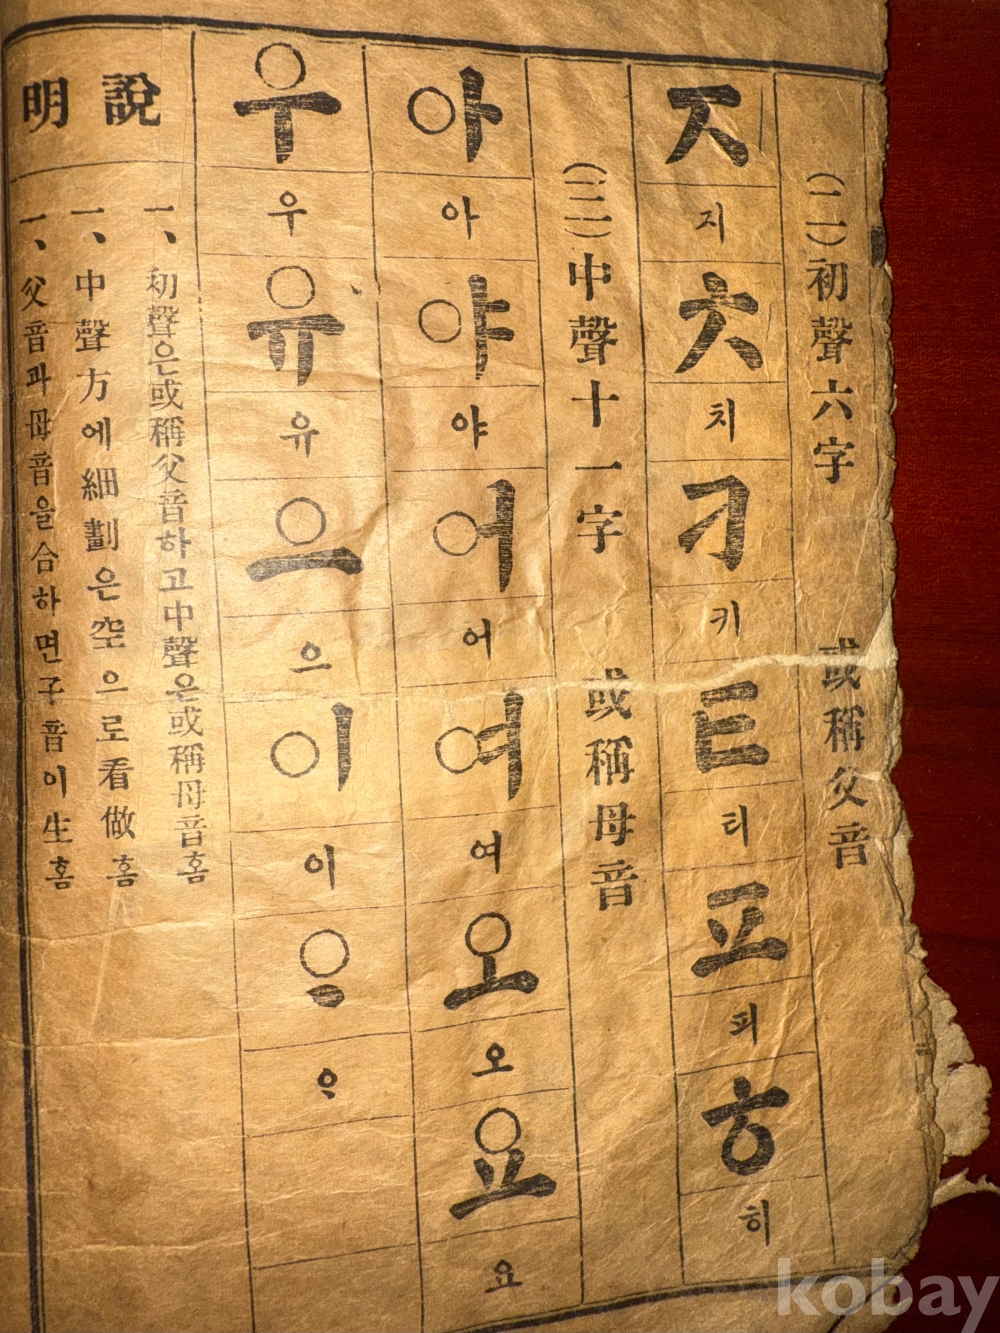 (二)初聲六字 或稱父音
ㅈ 지 ㅊ 치 ㅋ 키 ㅌ 티 ㅍ 피 ㅎ 히
(三)中聲十一字 或稱母音
아 아 야 야 어 어 여 여 오 오 요 요
우 우 유 유 으 으 이 이 ᄋᆞ ᄋᆞ
說明
一、初聲은或稱父音하고中聲은或稱母音홈
一、中聲方에細劃은空으로看做홈
一、父音과母音을合하면子音이生홈
kobay